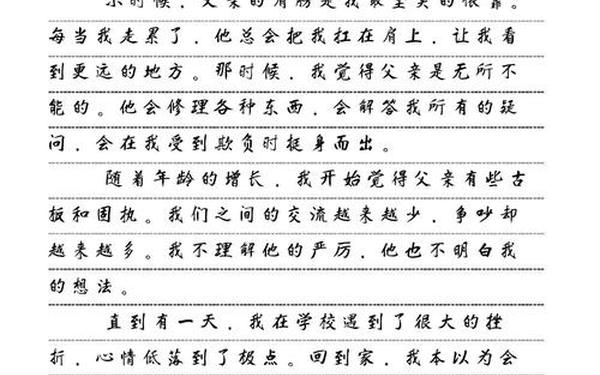 小时候，父亲的肩膀是我最坚实的依靠。
每当我走累了，他总会把我扛在肩上，让我看
到更远的地方。那时候，我觉得父亲是无所不
能的。他会修理各种东西，会解答我所有的疑
问，会在我受到欺负时挺身而出。
随着年龄的增长，我开始觉得父亲有些古
板和固执。我们之间的交流越来越少，争吵却
越来越多。我不理解他的严厉，他也不明白我
的想法。
直到有一天，我在学校遇到了很大的挫
折，心情低落到了极点。回到家，我本以为会